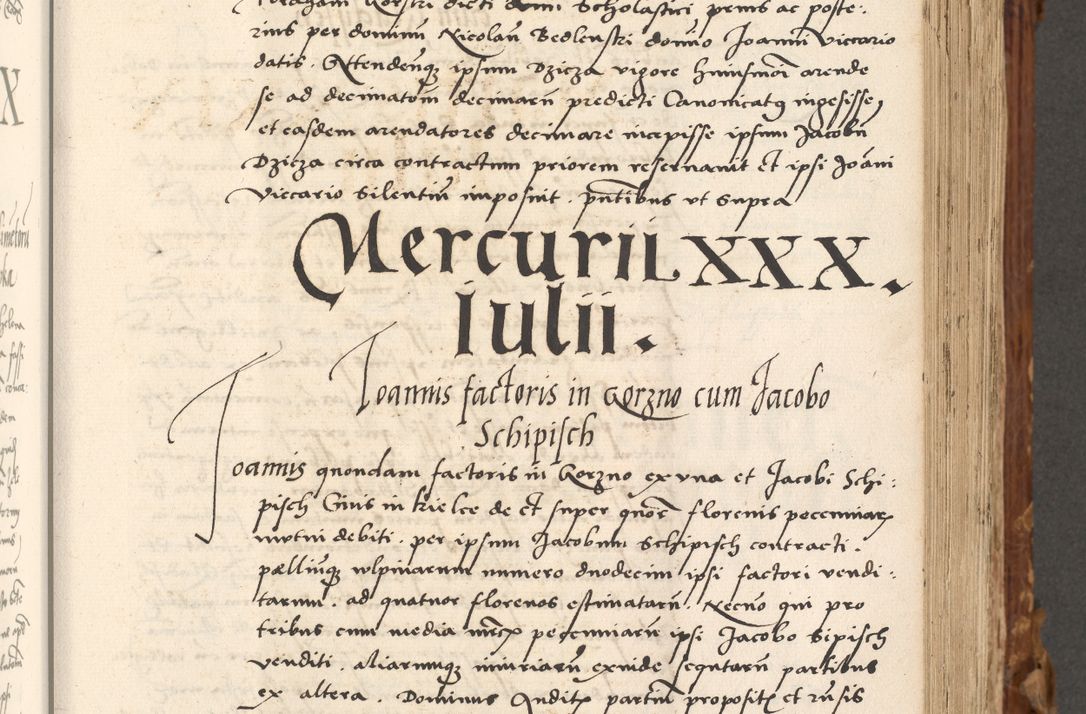 rius per dominum Nicolaum Bedlenski domino Joanni viccario
datis. Attendensque ipsum Dzicza vigore huiusmodi arende
se ad decimatorum decimarum predicti Canonicatus ingesisse,
et easdem arendatores decimare incepisse ipsum Jacobum
Dzicza circa contractum priorem reservavit et ipsi Joanni
viccario silentium imposuit. presentibus ut supra
Mercurii XXX.
Iulii.
Joannis factoris in Gorzno cum Jacobo
Schipisch
Joannis quondam factoris in Gorzno ex una et Jacobi Schi:
pisch Civis in Kielce de et super quatuor florenis pecuniarum
mutui debiti. per ipsum Jacobum Schipisch contracti.
pelliumque wlpinarum numero duodecim ipsi factori vendi:
tarum. ad quatuor florenos estimatarum. Necnon qui pro
tribus cum media marcis pecuniarum ipsi Jacobo Sipisch
venditi. aliarumque iniuriarum exinde sequtarum partibus
ex altera. Dominus Auditis partium propositis et